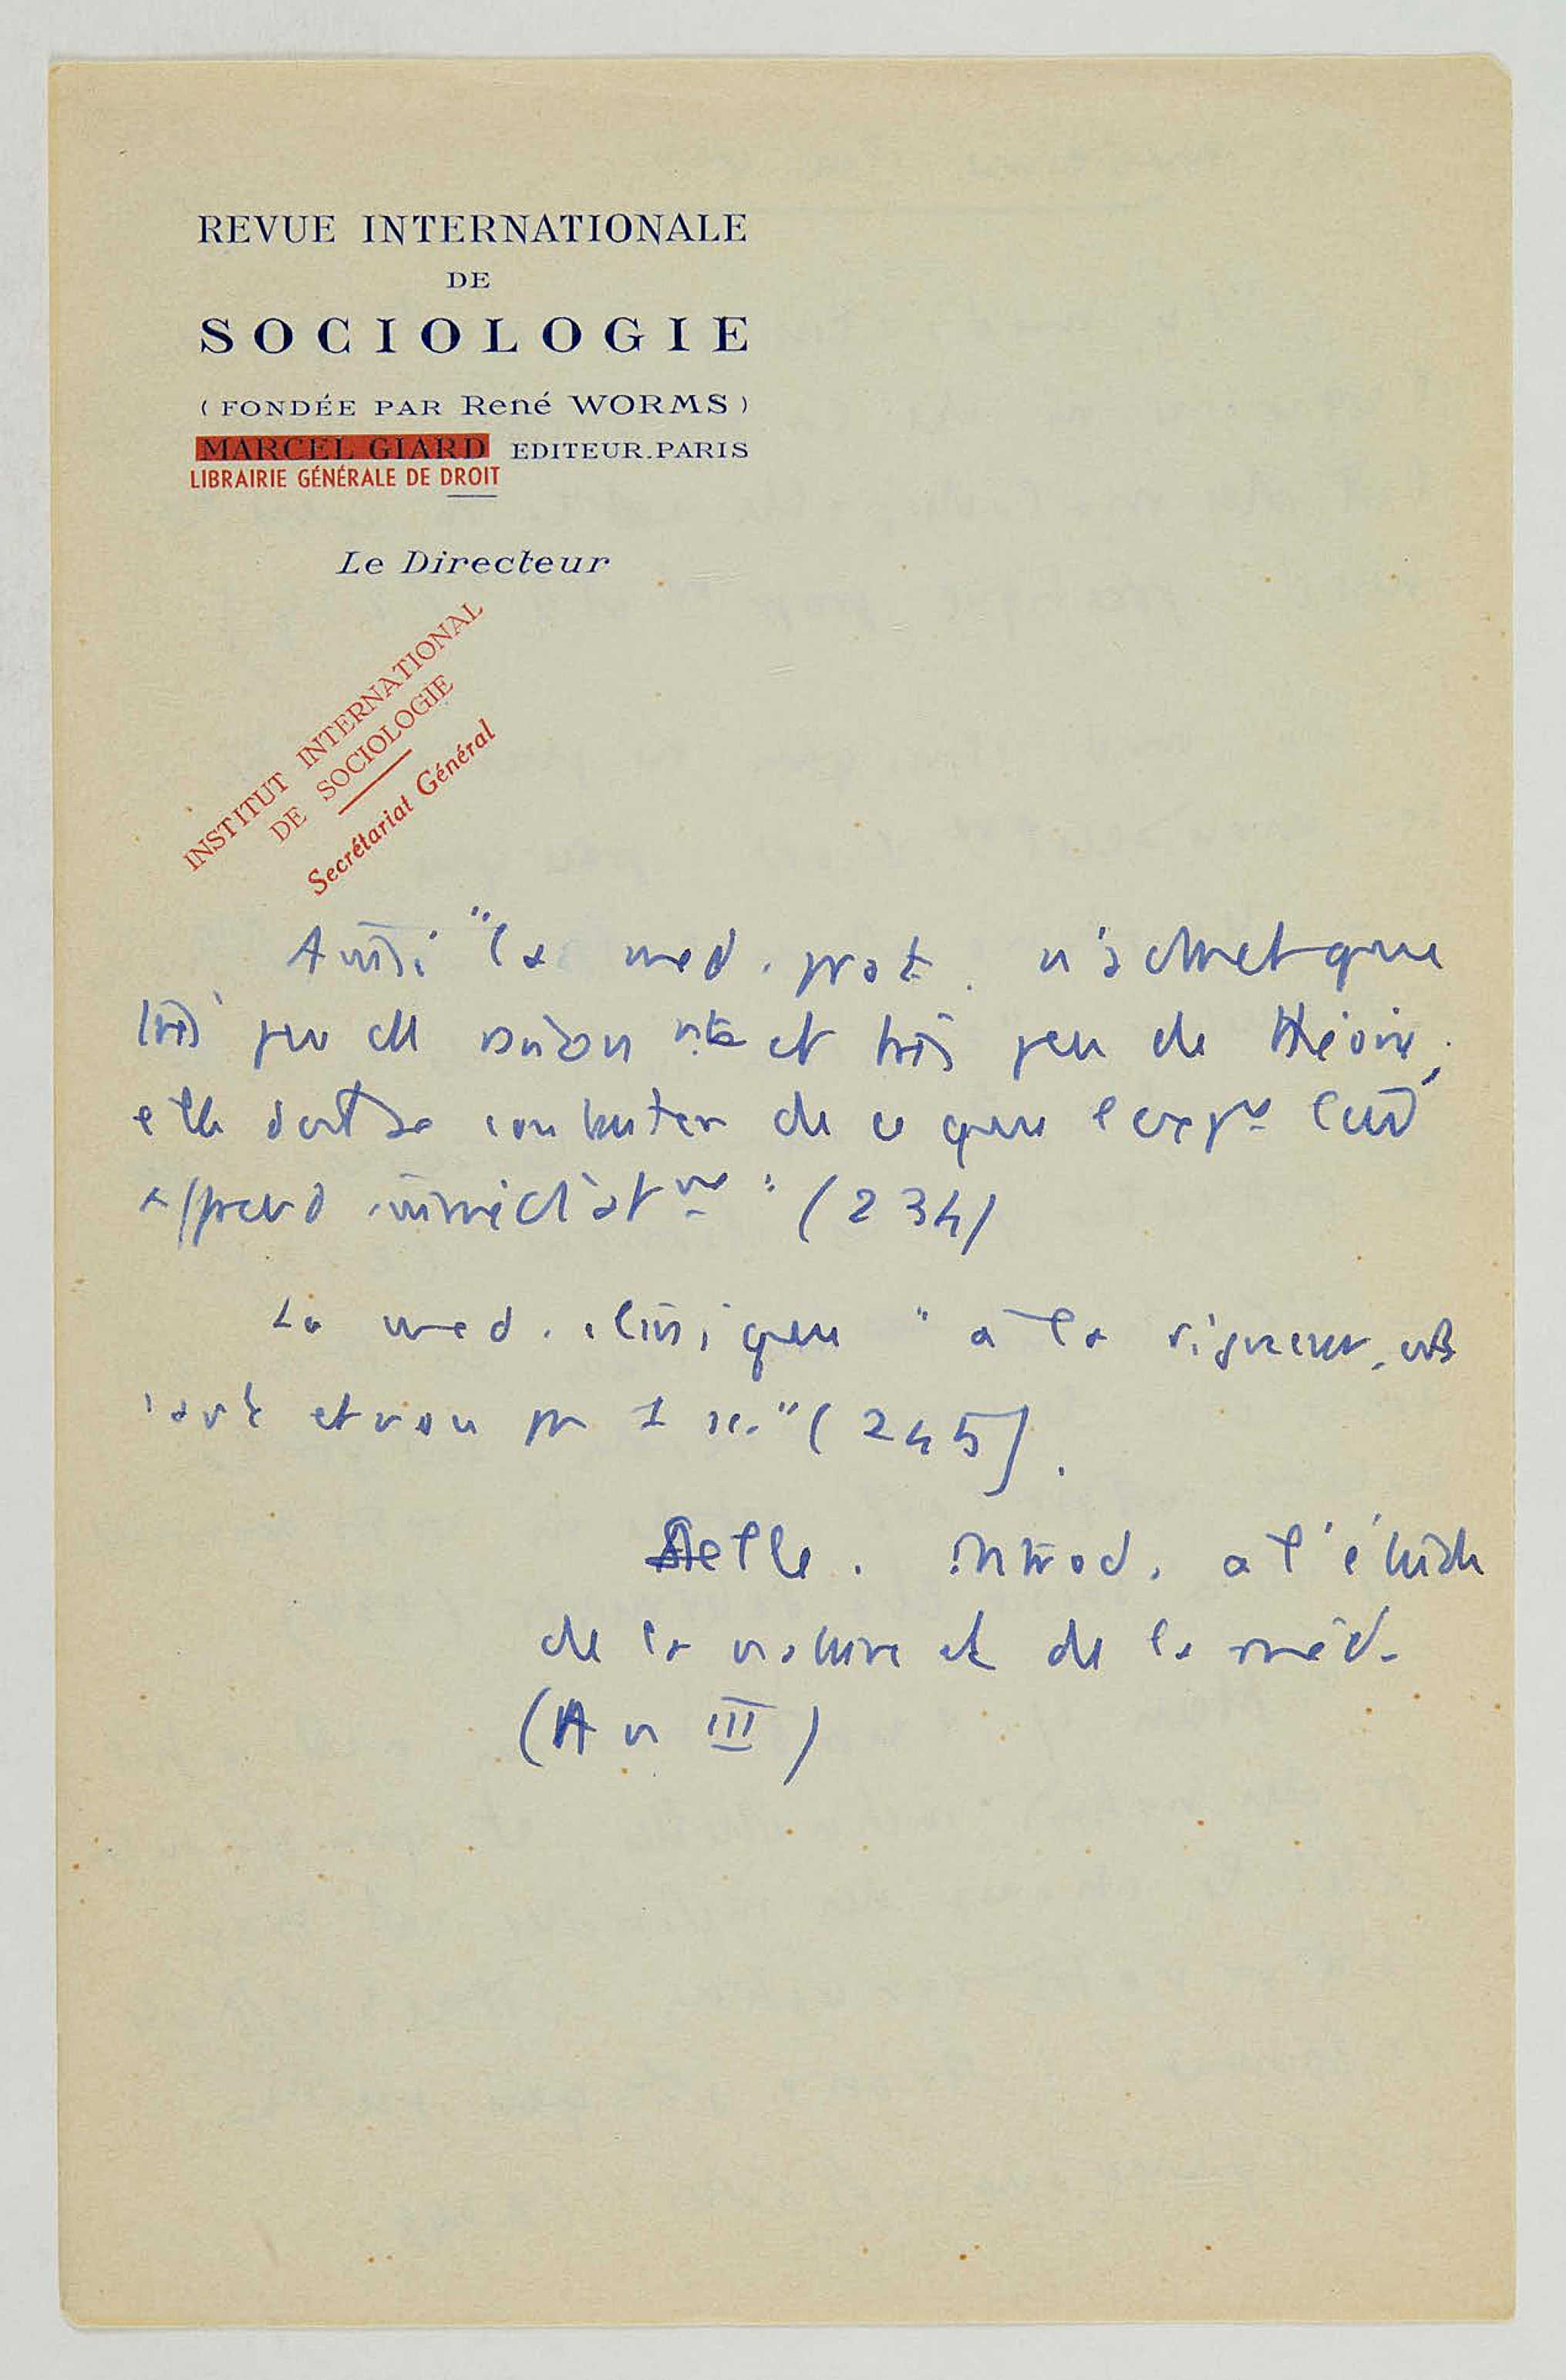 REVUE INTERNATIONALE
DE
SOCIOLOGIE
(FONDÉE PAR René WORMS)
MARCEL GIARD EDITEUR.PARIS
LIBRAIRIE GÉNÉRALE DE DROIT
Le Directeur
INSTITUT INTERNATIONAL
DE SOCIOLOGIE
Secrétariat Général
Ainsi "la med. prat. n'admet que
très peu de et très peu de théorie;
elle doit se contenter de ce que l'
apprend " (234)
La med. clinique " à la rigueur,
" (245).
Selle. Introd. a l'étude
de la nature et de la méd.
(An III)